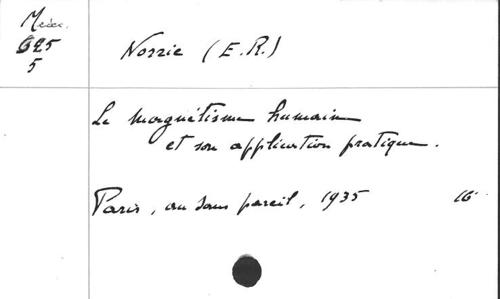 Meier.
625
5
Norrie (E.R.)
Le magnétisme humain
et son application pratique.
Paris, au sans pareil, 1935 16